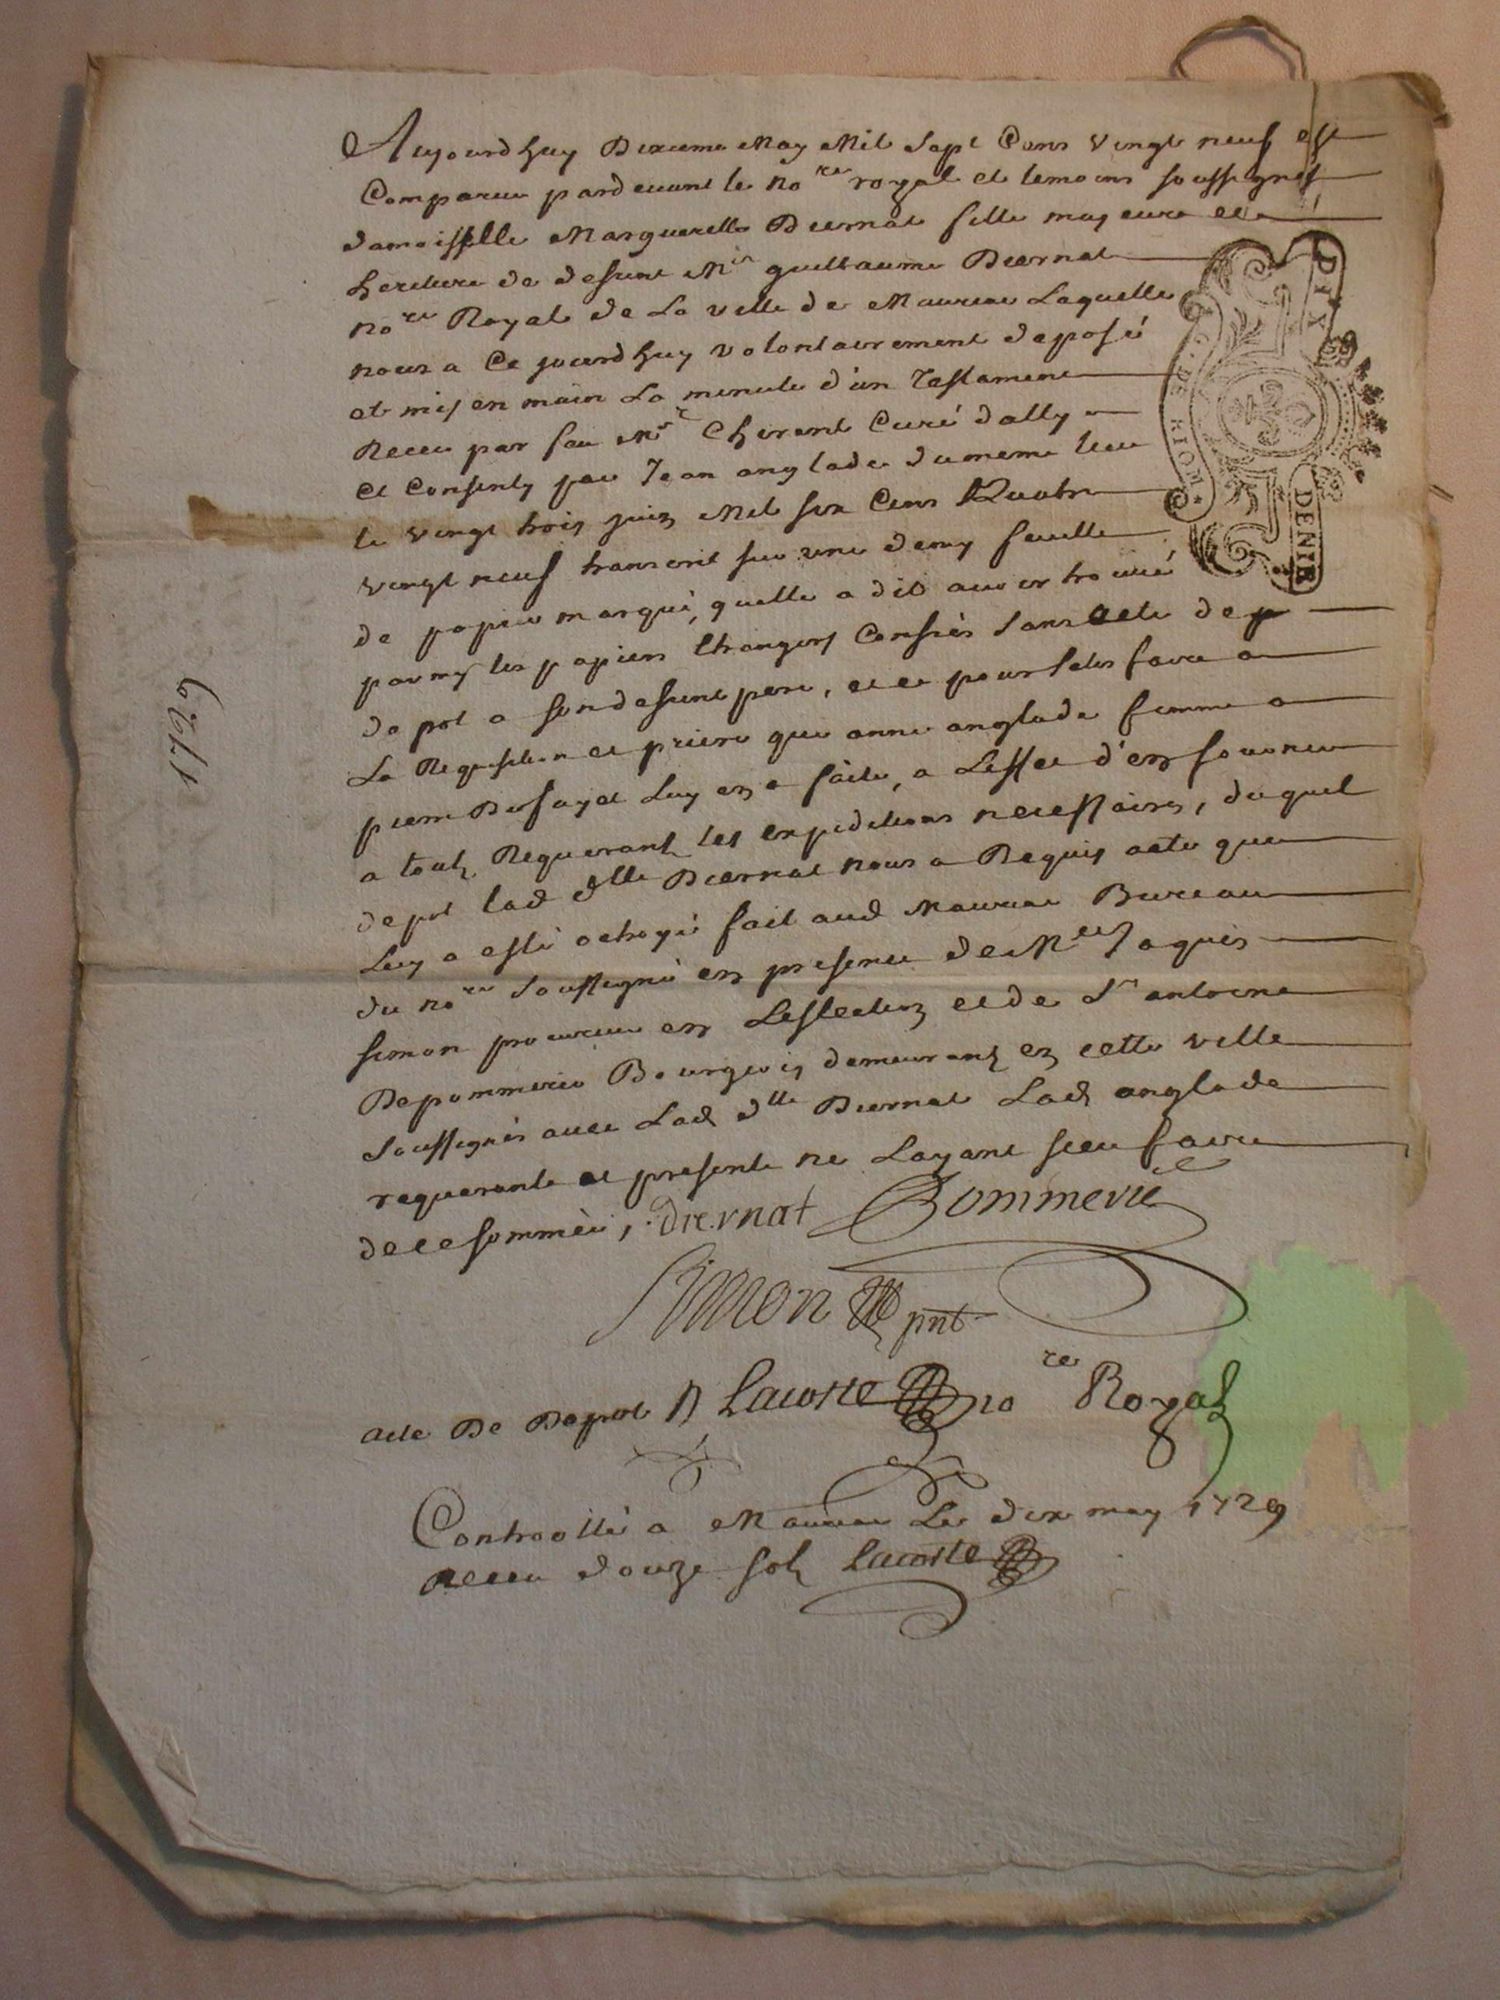 Aujourdhuy Dixieme May Mil Sept Cens vingt neuf est
Comparue pardevant le no.re royal et temoins soussignés
damoiselle Marguerette Diernat fille majeure et
heritiere de defunt M.re guillaume Diernat
no.re Royal de La ville de Mauriac Laquelle
nous a Ce jourdhuy volontairement deposé
et mis en main La minute d'un Testament
Receu par feu M.re Curé dally
et Consenty par Jean anglade du meme lieu
le vingt trois juin Mil six Cens Quatre
vingt neuf transcrit sur une demy feuille
de papier marqué, quelle a dit avoir trouvé
parmy les papiers Etrangers Confiés sans acte de
depot a son defunt pere, et ce pour satisfaire a
La Requisition et priere que anne anglade femme a
pierre Dufayet Luy en a faite, a Leffet d'en fournir
a touts Requerants les expeditions necessaires, duquel
depot lad dlle Diernat nous a Requis acte que
Luy a esté octroyé fait aud Mauriac Bureau
du no.re soussigné en presence de M.re Jaques
simon procureur en Leslection et de S.r antoine
Depommerie Bourgeois demeurants en cette ville
soussignés avec Lad dlle Diernat Lad anglade
requerante et presente ne Layant sceu faire
de ce sommée, diernat Pommerie
Simon pnt
acte De Depot Lacoste no.re Royal
Controollé a Mauriac Le dix may 1729
Receu douze sols Lacoste
G. DE RIOM
DIX
DENIR
1729